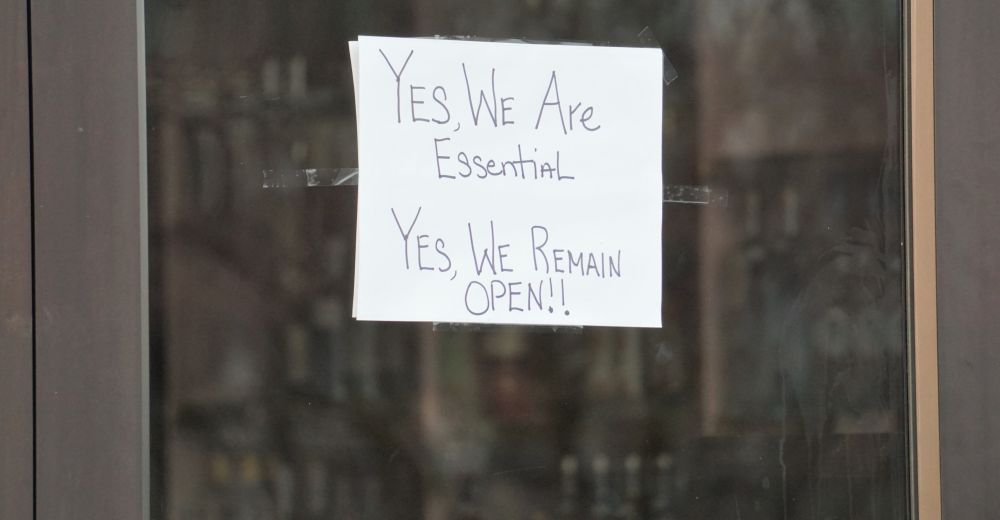 Yes, We Are
Essential
Yes, We Remain
OPEN!!